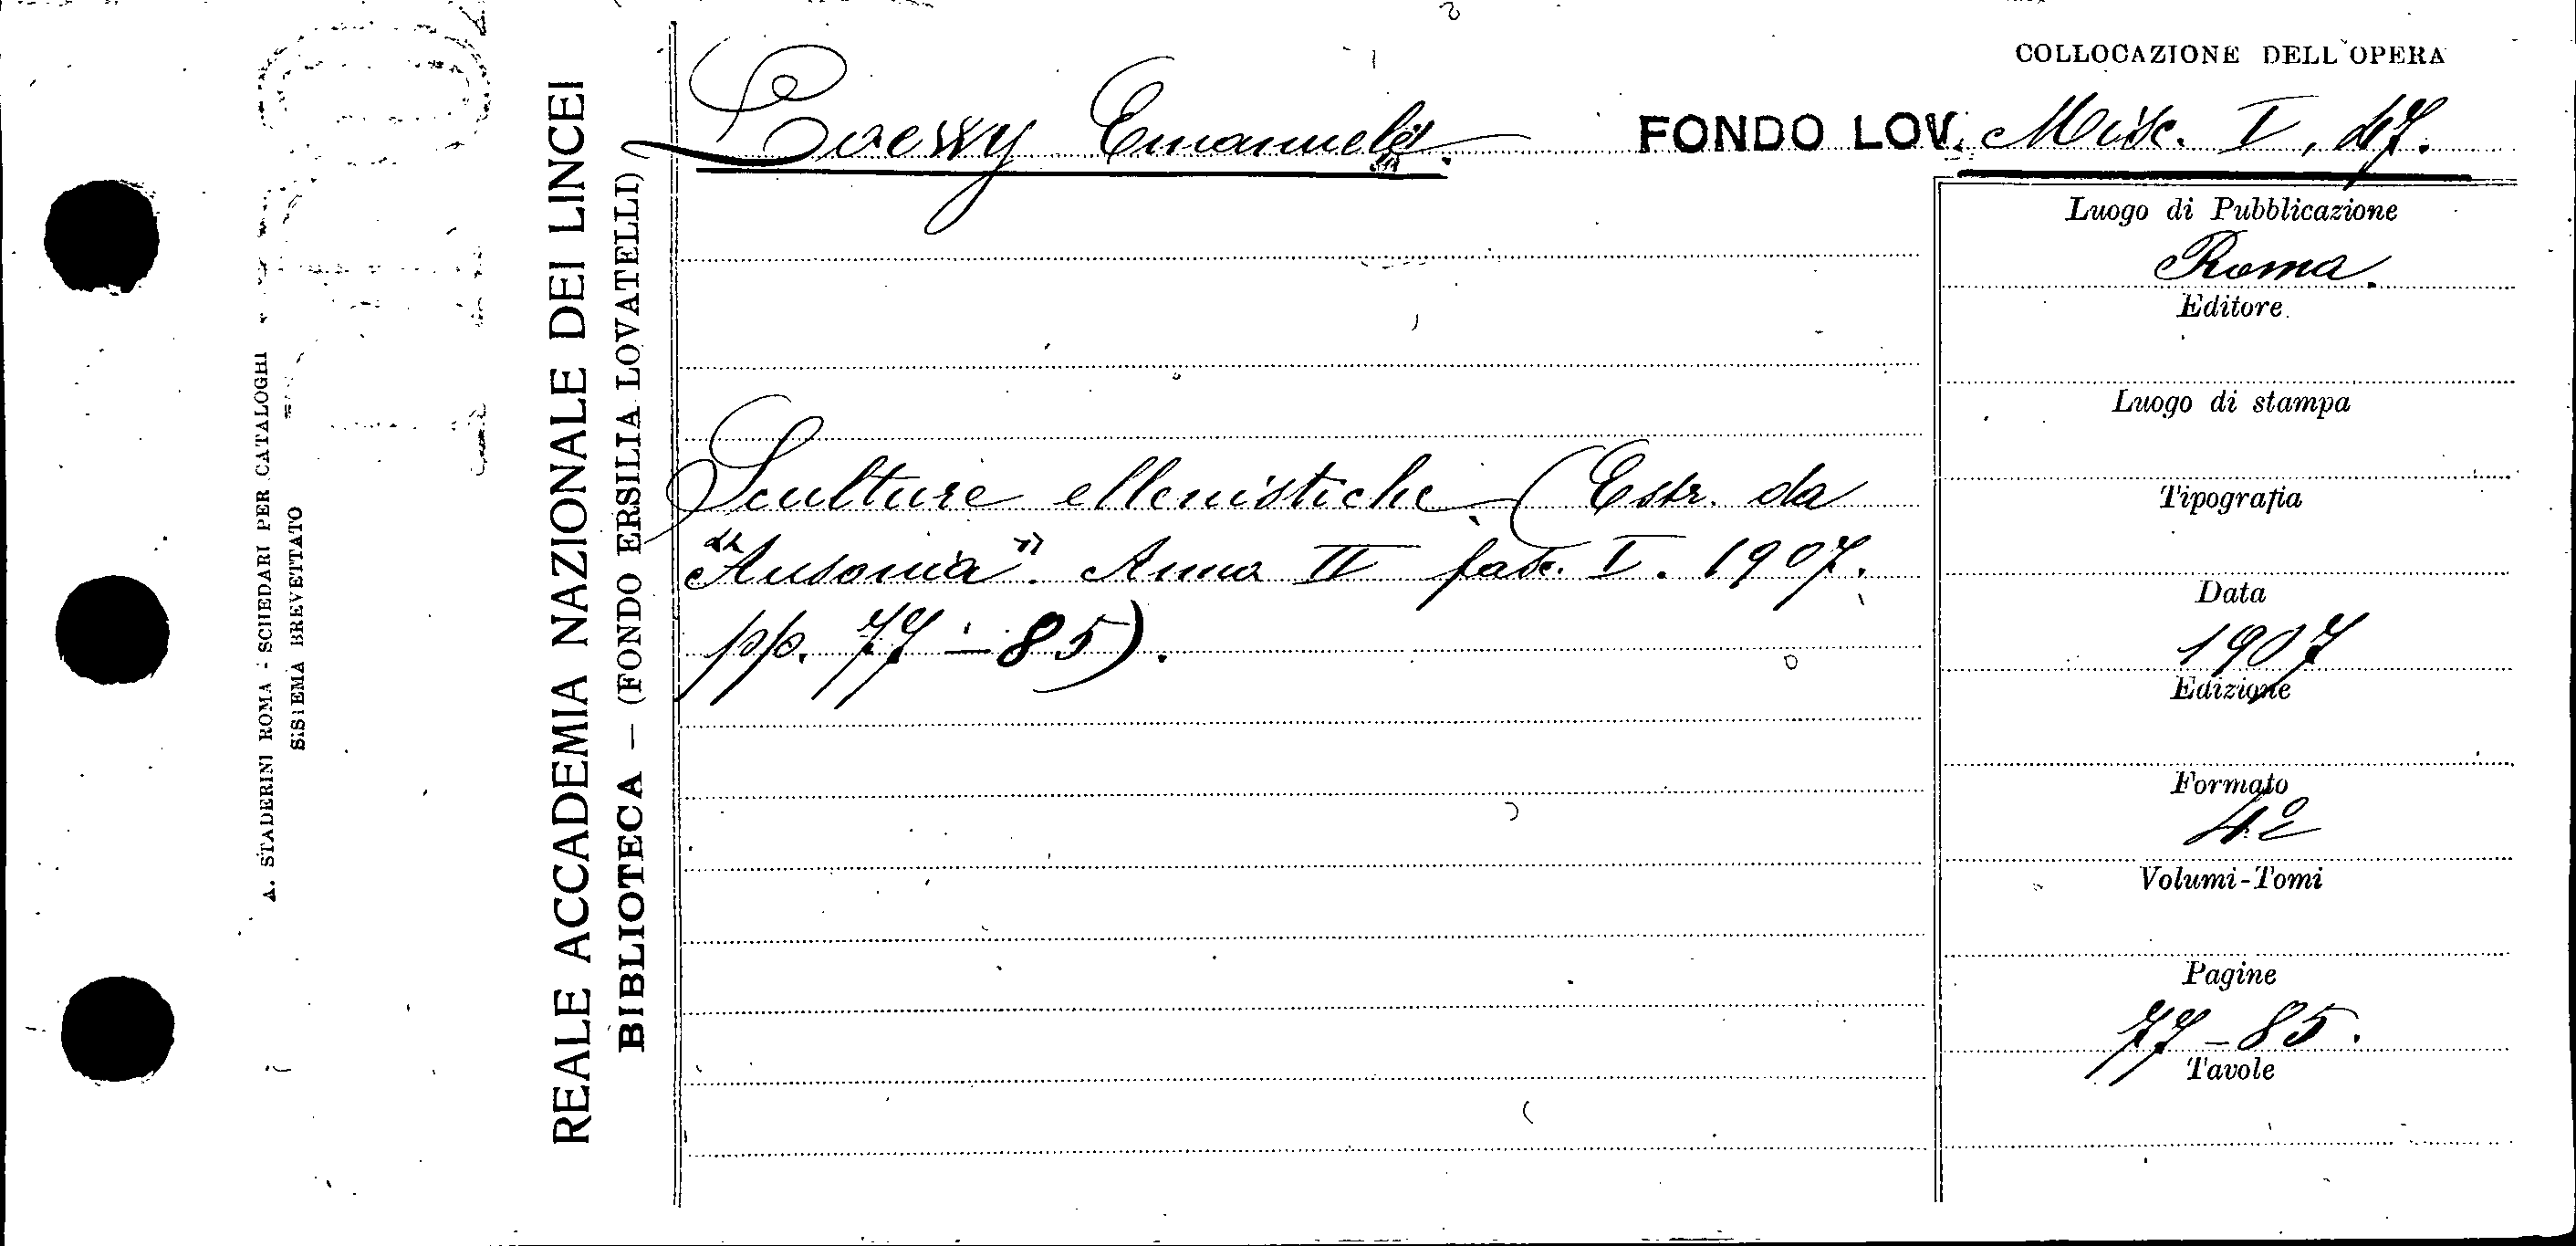 COLLOCAZIONE DELL'OPERA
Loewy Emanuele. FONDO LOV. Misc. I,
Luogo di Pubblicazione
Roma.
Editore
Luogo di stampa
Sculture ellenistiche. (Estr. da
"Ausonia". Anno II fasc. I. 1907.
pp. 77-85).
Tipografia
Data
1907
Edizione
Formato
4º
Volumi-Tomi
Pagine
77-85.
Tavole
REALE ACCADEMIA NAZIONALE DEI LINCEI
BIBLIOTECA — (FONDO ERSILIA LOVATELLI)
A. STADERINI ROMA - SCHEDARI PER CATALOGHI
SISTEMA BREVETTATO